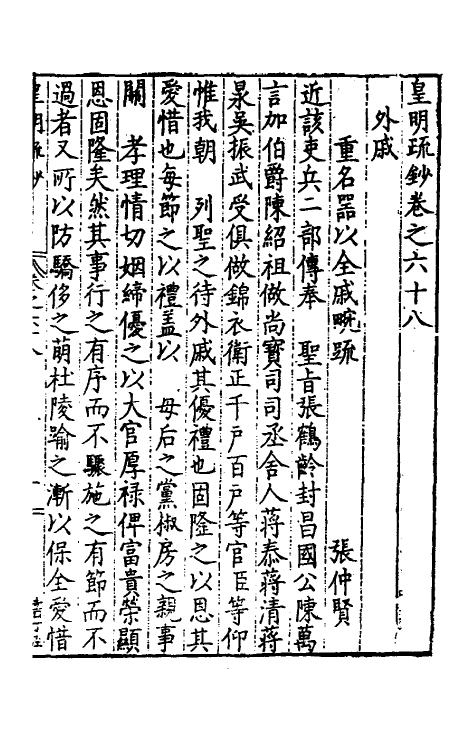 皇明疏鈔卷之六十八
外戚
重名器以全戚畹疏　張仲賢
近該吏兵二部傳奉　聖旨張鶴齡封昌國公陳萬
言加伯爵陳紹祖做尚寶司司丞舍人蔣泰蔣清蔣
泉吳振武受俱做錦衣衛正千戶百戶等官臣等仰
惟我朝　列聖之待外戚其優禮也固隆之以恩其
愛惜也每節之以禮盖以　母后之黨椒房之親事
關　孝理情切姻締優之以大官厚祿俾富貴榮顯
恩固隆矣然其事行之有序而不驟施之有節而不
過者又所以防驕侈之萌杜陵踰之漸以保全愛惜
皇明疏鈔